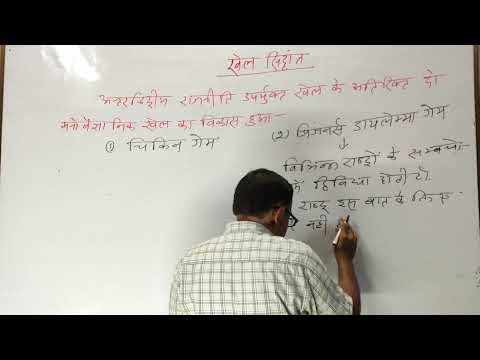 खेल सिद्धांत
अन्तर्राष्ट्रीय राजनीति उपर्युक्त खेल के अतिरिक्त दो
मनोवैज्ञानिक खेल का विकास हुआ-
① चिकिन गेम
(2) प्रिजनर्स डायलेम्मा गेम
विभिन्न राष्ट्रों के सम्बन्धों
में द्विविधा होती है।
राष्ट्र इस बात के लिए
नहीं